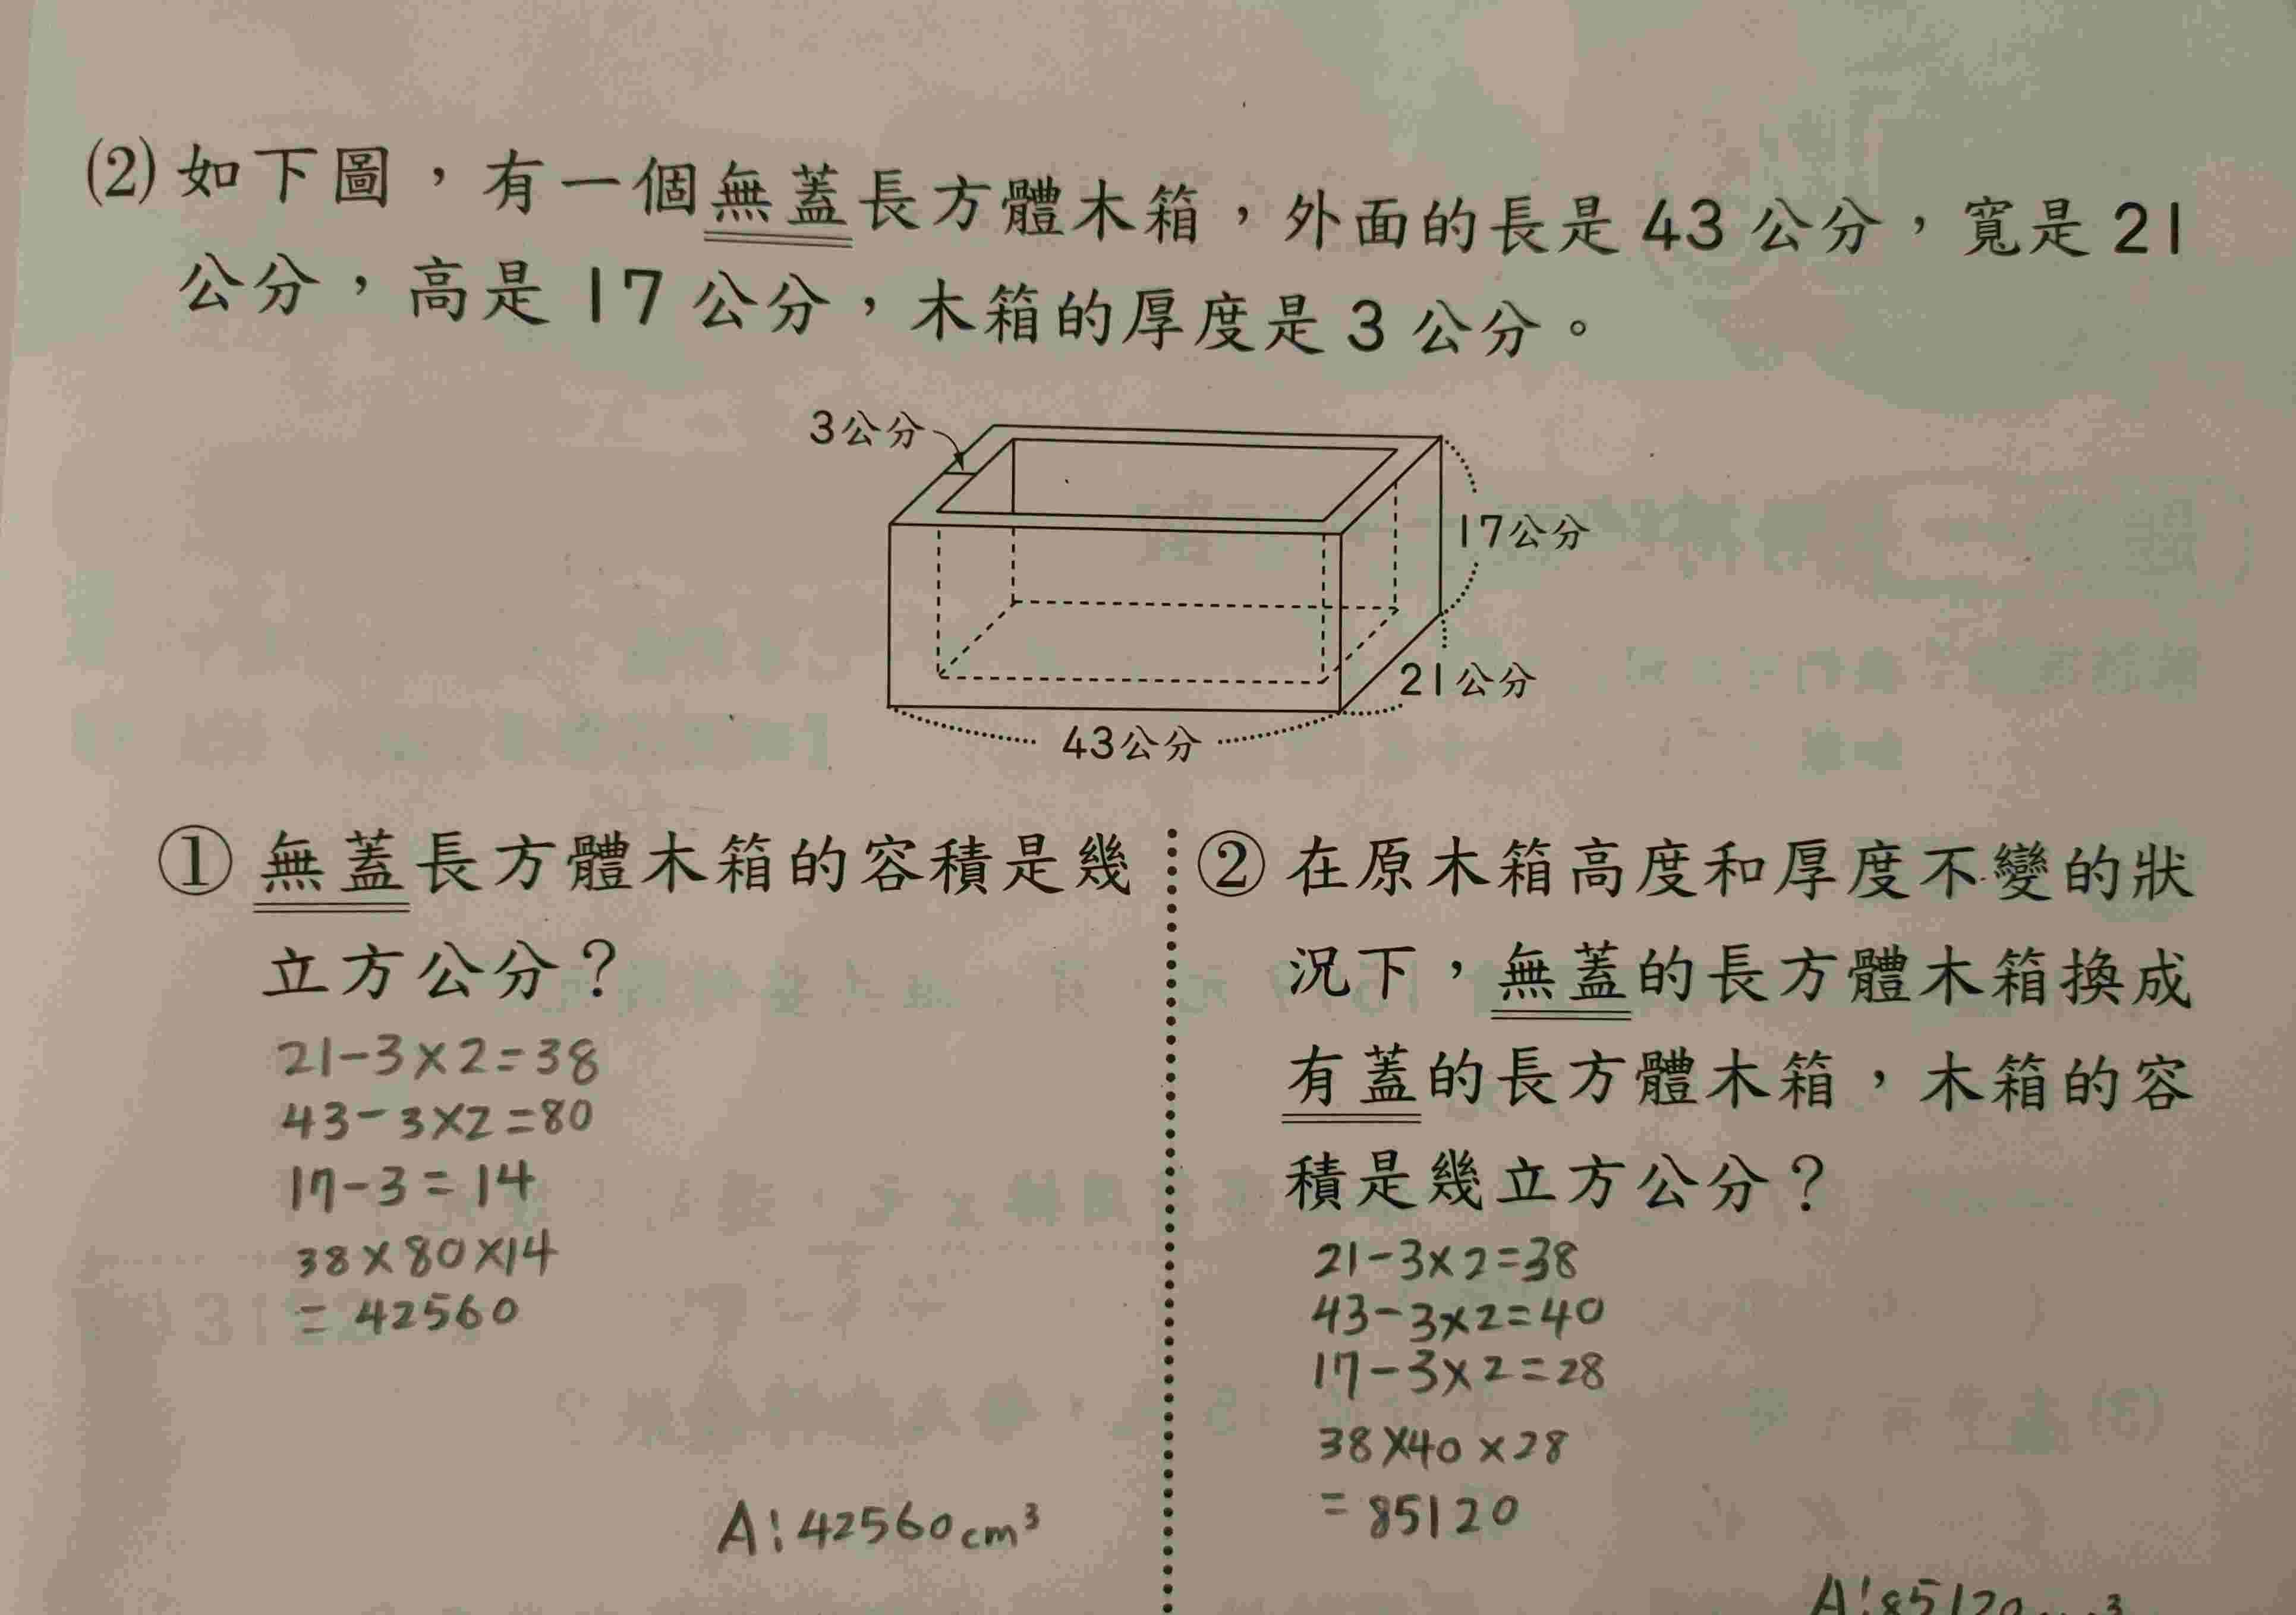 (2) 如下圖，有一個無蓋長方體木箱，外面的長是 43 公分，寬是 21
公分，高是 17 公分，木箱的厚度是 3 公分。
3公分
17公分
21公分
43公分
① 無蓋長方體木箱的容積是幾
立方公分？
21-3×2=38
43-3×2=80
17-3=14
38×80×14
= 42560
A:42560cm³
② 在原木箱高度和厚度不變的狀
況下，無蓋的長方體木箱換成
有蓋的長方體木箱，木箱的容
積是幾立方公分？
21-3×2=38
43-3×2=40
17-3×2=28
38×40×28
= 85120
A:85120cm³